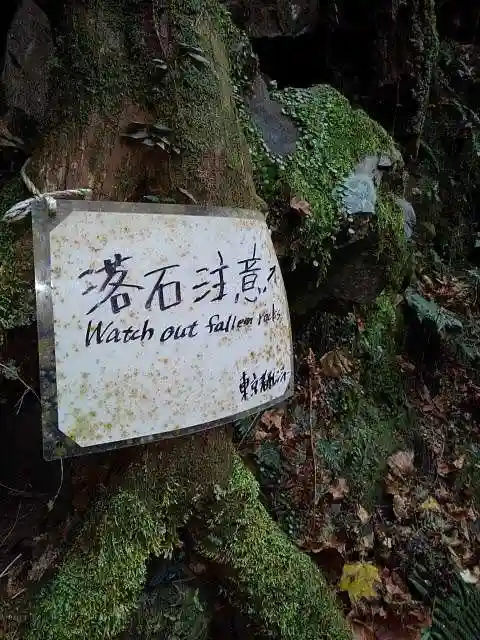 落石注意
Watch out fallen rocks
東京